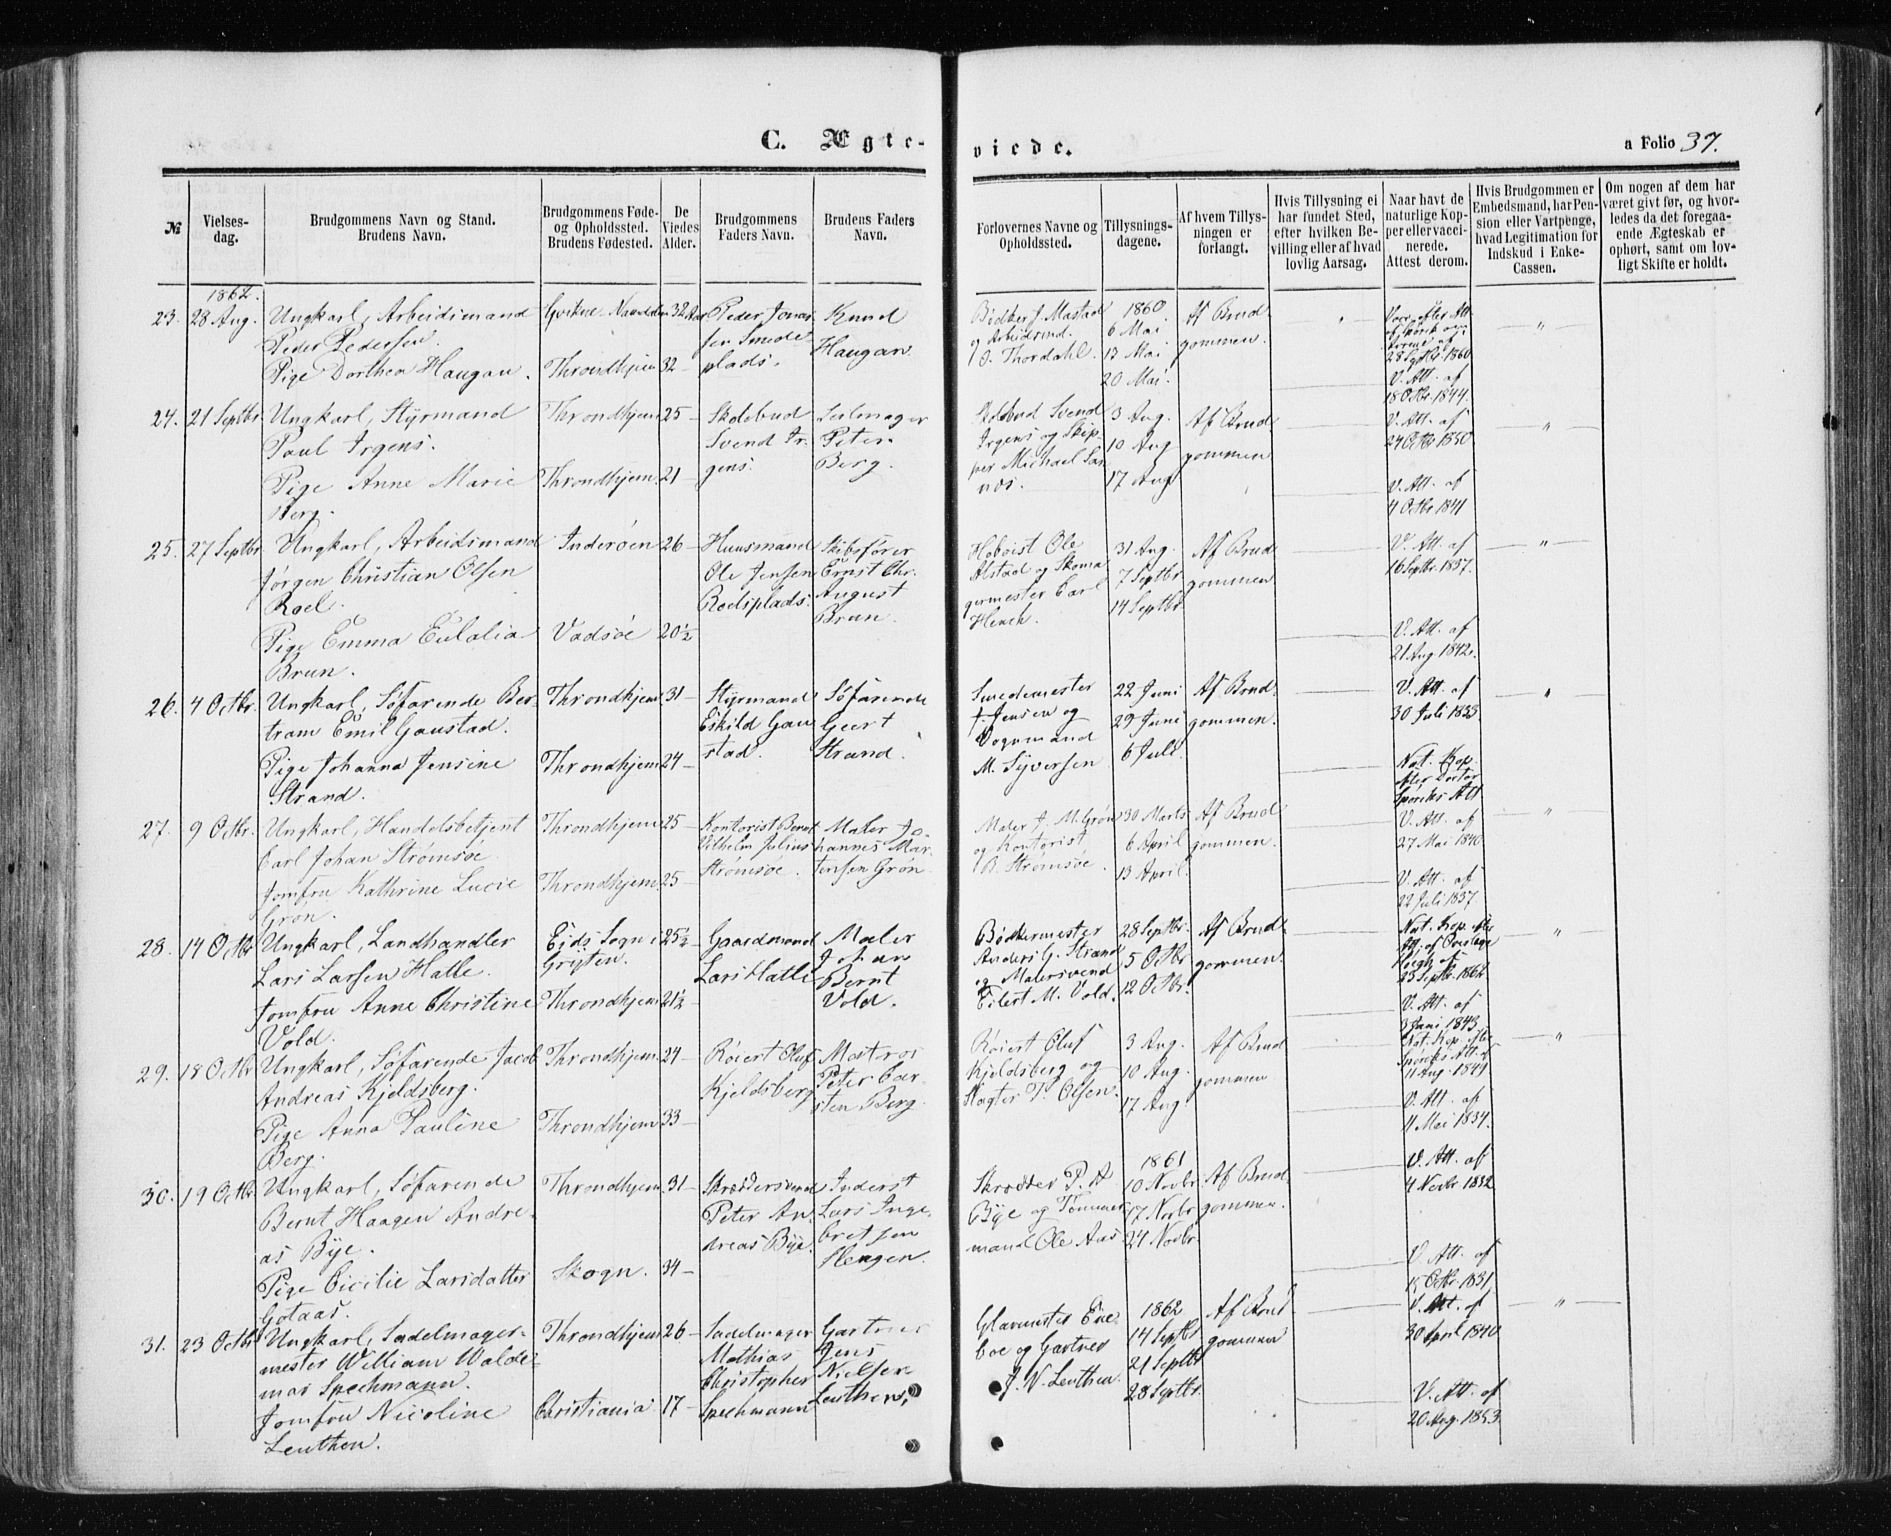 C. Ægte-
viede.
a Folio 37.
№
Vielses-
dag.
Brudgommens Navn og Stand.
Brudens Navn.
Brudgommens Føde-
og Opholdssted.
Brudens Fødested.
De
Viedes
Alder.
Brudgommens
Faders Navn.
Brudens Faders
Navn.
Forlovernes Navne og
Opholdssted.
Tillysnings-
dagene.
Af hvem Tillys-
ningen er
forlangt.
Hvis Tillysning ei
har fundet Sted,
efter hvilken Be-
villing eller af hvad
lovlig Aarsag.
Naar havt de
naturlige Kop-
per eller vacci-
nerede.
Attest derom.
Hvis Brudgommen er
Embedsmand, har Pen-
sion eller Vartpenge,
hvad Legitimation for
Indskud i Enke-
Cassen.
Om nogen af dem har
været givt før, og hvor-
ledes da det foregaa-
ende Ægteskab er
ophørt, samt om lov-
ligt Skifte er holdt.
1862.
23. 28 Aug.
Ungkarl, Arbeidsmand
Peder Pedersen.
Pige Dorthea Haugan.
Throndhjem
32
32
Peder Jonas
sen Smeds
plads.
Knud
Haugan
Mastad
og Arbeidsmd.
O. Thordahl.
1860
6 Mai
13 Mai
20 Mai.
Af Brud
gommen
28 Septbr. 1860
V. Att. af
18 Octbr. 1844.
24. 21 Septbr.
Ungkarl, Styrmand
Paul Irgens.
Pige Anne Marie
Berg.
Throndhjem
Throndhjem.
25
21
Skolebud
Svend Ir-
gens.
Seilmager
Peter
Berg.
Skolebud Svend
Irgens og Skip-
per Michael
3 Aug.
10 Aug
17 Aug
Af Brud
gommen
V. Att. af
24 Octbr 1850
V. Att. af
4 Octbr 1841
25. 27 Septbr
Ungkarl, Arbeidsmand
Jørgen Christian Olsen
Roel.
Pige Emma Eulalia
Brun.
Inderøen
Vadsøe
26
20½
Huusmand
Ole Jensen
Roelsplads.
Skibsfører
Ernst Chr.
August
Brun.
Hoboist Ole
Ølstad og Skoma
germester Carl
31 Aug.
7 Septbr
14 Septbr.
Af Brud
gommen
V. Att. af
16 Septbr. 1837.
V. Att. af
21 Aug 1842.
26. 4 Octbr.
Ungkarl, Søfarende Ber-
tram Emil Gaustad.
Pige Johanna Jensine
Strand.
Throndhjem
Throndhjem
31
24
Styrmand
Eskild Gau
stad.
Søfarende
Geert
Strand.
Smedemester
Jensen og
Vognmand
M. Syversen
22 Juni
29 Juni
6 Juli
Af Brud-
gommen.
V. Att. af
30 Juli 1833.
Nat. Kop.
efter Doctor
Spørcks Att
27. 9 Octbr.
Ungkarl, Handelsbetjent
Carl Johan Strømsøe.
Jomfru Kathrine Lucie
Grøn.
Throndhjem
Throndhjem
25
25
Kontorist Bernt
Vilhelm Julius
Strømsøe.
Maler Jo-
hannes Mar-
tensen Grøn.
Maler J. M. Grøn
og Kontorist
B. Strømsøe.
30 Marts
6 April
13 April.
Af Brud
gommen.
V. Att. af
27 Mai 1840
V. Att. af
22 Juli 1837.
28. 14 Octbr
Ungkarl, Landhandler
Lars Larsen Halle.
Jomfru Anne Christine
Vold.
Eids Sogn i
Gryten.
Throndhjem
25½
21½
Gaardmand
Lars Halle
Maler
Johan
Bernt
Vold.
Bødkermester
Anders G. Strand
og Malersvend
Eilert M. Vold.
28 Septbr.
5 Octbr
12 Octbr.
Af Brud-
gommen
Nat. Kop. efter
Att. af Overlæge
25 Septbr. 1862
V. Att. af
3 Juni 1843
29. 18 Octbr
Ungkarl, Søfarende Jacob
Andreas Kjeldsberg.
Pige Anna Pauline
Berg.
Throndhjem
Throndhjem
24
33
Roiert Oluf
Kjeldsberg
Matros
Peter Car-
sten Berg.
Roiert Oluf
Kjeldsberg og
Slagter P. Olsen.
3 Aug.
10 Aug.
17 Aug.
Af Brud
gommen
Nat. Kop. efter
Spørcks Att. af
11 Aug. 1841
V. Att. af
11 Mai 1834.
30. 19 Octbr.
Ungkarl, Søfarende
Bernt Haagen Andre-
as Bye.
Pige Cicilie Larsdatter
Gotaas.
Throndhjem
Skogn.
31
34
Skræddersvend
Peter An
dreas Bye.
Inderst
Lars Inge-
bretsen
Stengen.
Skrædder P. A
Bye og Tømmer
mand Ole Aas
1861
10 Novbr
17 Novbr
24 Novbr.
Af Brud-
gommen.
V. Att. af
4 Novbr 1832
V. Att. af
15 Octbr. 1831
31. 23 Octbr
Ungkarl, Sadelmager-
mester William Walde-
mar Spechmann.
Jomfru Nicoline
Leuthen.
Throndhjem
Christiania
26
17
Sadelmager
Mathias
Christopher
Spechmann
Gartner
Jens
Nielsen
Leuthen.
Glarmester Ene
boe og Gartner
J. N. Leuthen
1862
14 Septbr
21 Septbr
28 Septbr.
Af Brud-
gommen
V. Att. af
30 April 1840
V. Att. af
20 Aug. 1853.